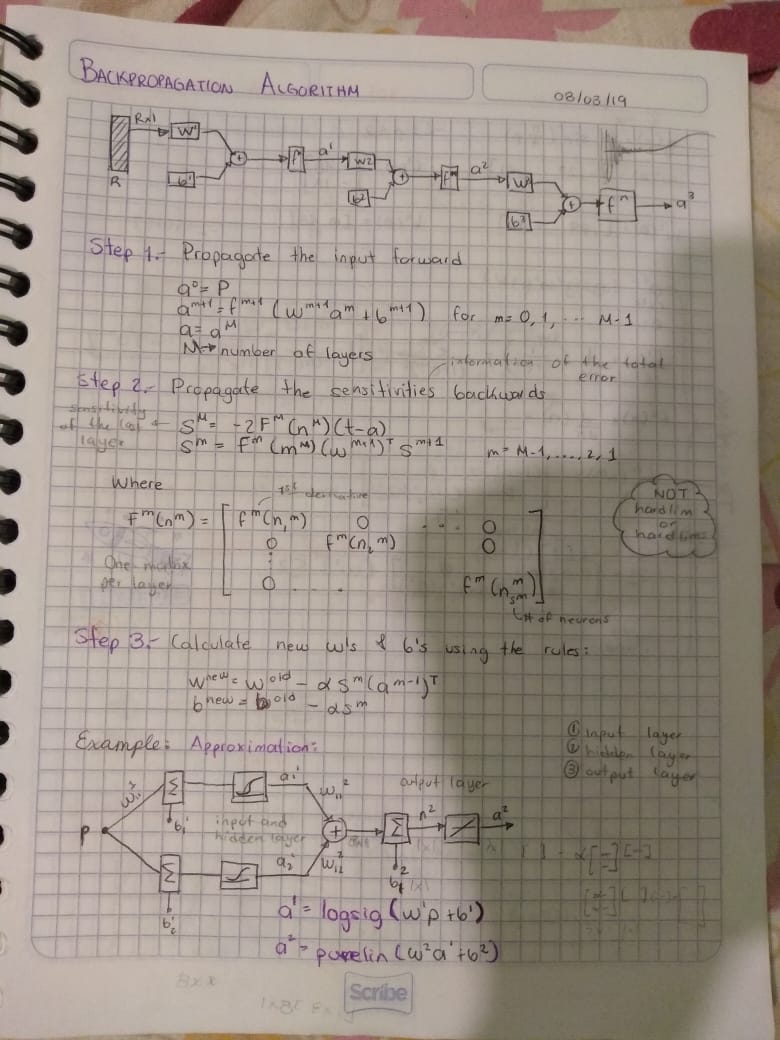 BACKPROPAGATION ALGORITHM
08/03/19
Rx1
W¹
a¹
W2
a²
W
R
b¹
b2
b³
fⁿ
a³
Step 1.- Propagate the input forward
a⁰= P
a^{m+1} = f^{m+1} (W^{m+1} a^m + b^{m+1}) for m= 0, 1, ... M-1
a= a^M
M→ number of layers
information of the total error
Step 2.- Propagate the sensitivities backwards
sensitivity of the last layer
S^M = -2 F^M (n^M) (t-a)
S^m = F^m (m^M) (W^{m+1})^T S^{m+1} m= M-1, ...., 2, 1
Where
1st derivative
NOT hardlim or
F^m(n^m) = [ f^m(n_1^m) 0 ... 0
0 f^m(n_2^m) 0
0 . . . F^m(n_{s^m}^m) ]
One matrix per layer
# of neurons
Step 3.- Calculate new w's & b's using the rules:
W^{new} = W^{old} - α S^m (a^{m-1})^T
b^{new} = b^{old} - α S^m
① input layer
② hidden layer
③ output layer
Example: Approximation:
output layer
input and hidden layer
P
Σ
Σ
+
Σ
n²
a²
a¹ = logsig (W¹p + b¹)
a² = purelin (W²a¹ + b²)
Scribe